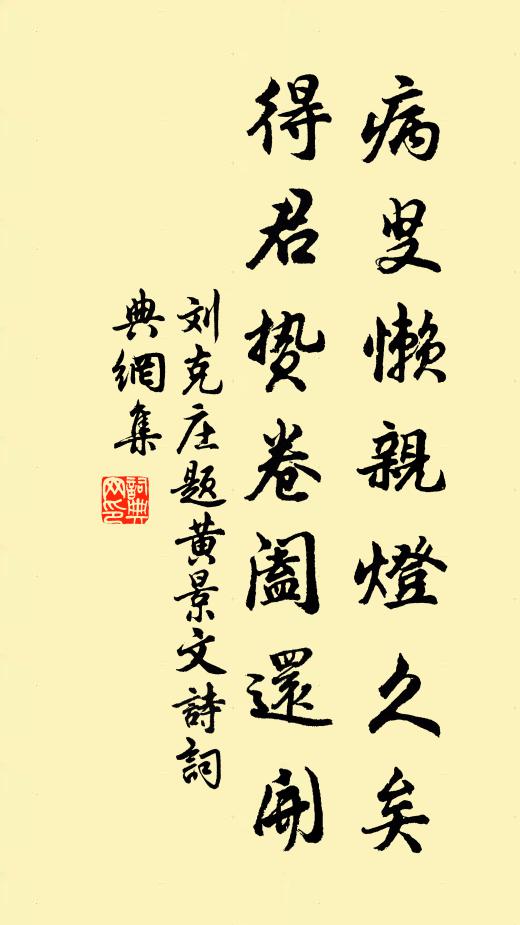 病叟懒親燈久矣
得君贽卷阖還開
刘克庄题黄景文詩詞
典網集
詞典網印